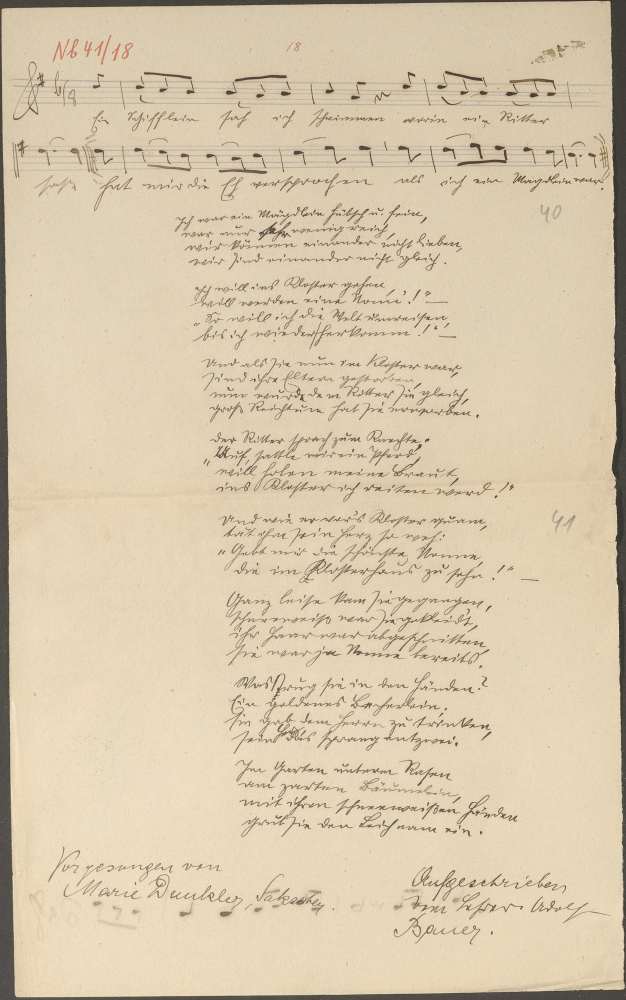 Nb 41/18
18
6/8
Ein Schifflein sah ich schwimmen worin ein Ritter
saß hat mir die Eh versprochen als ich ein Mägdlein war.
Ich war ein Mägdlein hübsch u. fein,
40
war nur sehr wenig reich,
wir können einander nicht lieben,
wir sind einander nicht gleich.
Ich will ins Kloster gehen,
will werden eine Nonne!" —
"So will ich die Welt umreisen,
bis ich wieder herkomm!" —
Und als sie nun im Kloster war,
sind ihre Eltern gestorben,
nun wurde dem Ritter sie gleich,
groß Reichtum hat sie erworben.
Der Ritter sprach zum Knechte:
"Auf, sattle mir ein Pferd,
will holen meine Braut,
ins Kloster ich reiten werd!"
Und wie er vor's Kloster quam,
41
tat ihm sein Herz so weh:
"Gebt mir die schönste Nonne,
die im Klosterhaus zu sehn!" —
Ganz leise kam sie gegangen,
schneeweiß war sie gekleidt,
ihr Haar war abgeschnitten,
sie war ja Nonne bereits.
Was trug sie in den Händen?
Ein goldenes Becherlein.
sie gab dem Herrn zu trinken,
sein Glas sprang entzwei.
Im Garten unterm Rasen
am zarten Bäumelein,
mit ihren schneeweißen Händen
grub sie den Leichnam ein.
Vorgesungen von
Marie Dunkler,
Aufgeschrieben
vom Lehrer Adolf
Bauer.